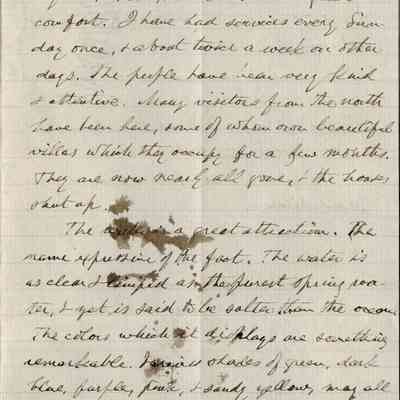 comfort. I have had services every Sun-
day once, & about twice a week on other
days. The people have been very kind
& attentive. Many visitors from the north
have been here, some of whom own beautiful
villas which they occupy for a few months.
They are now nearly all gone, & the houses
shut up.
The water is a great attraction. The
name expressive of the fact. The water is
as clear & limpid as the purest spring wa-
ter, & yet is said to be salter than the ocean
The colors which it displays are something
remarkable. Various shades of green, dark
blue, purple, pink, & sandy yellow, may all